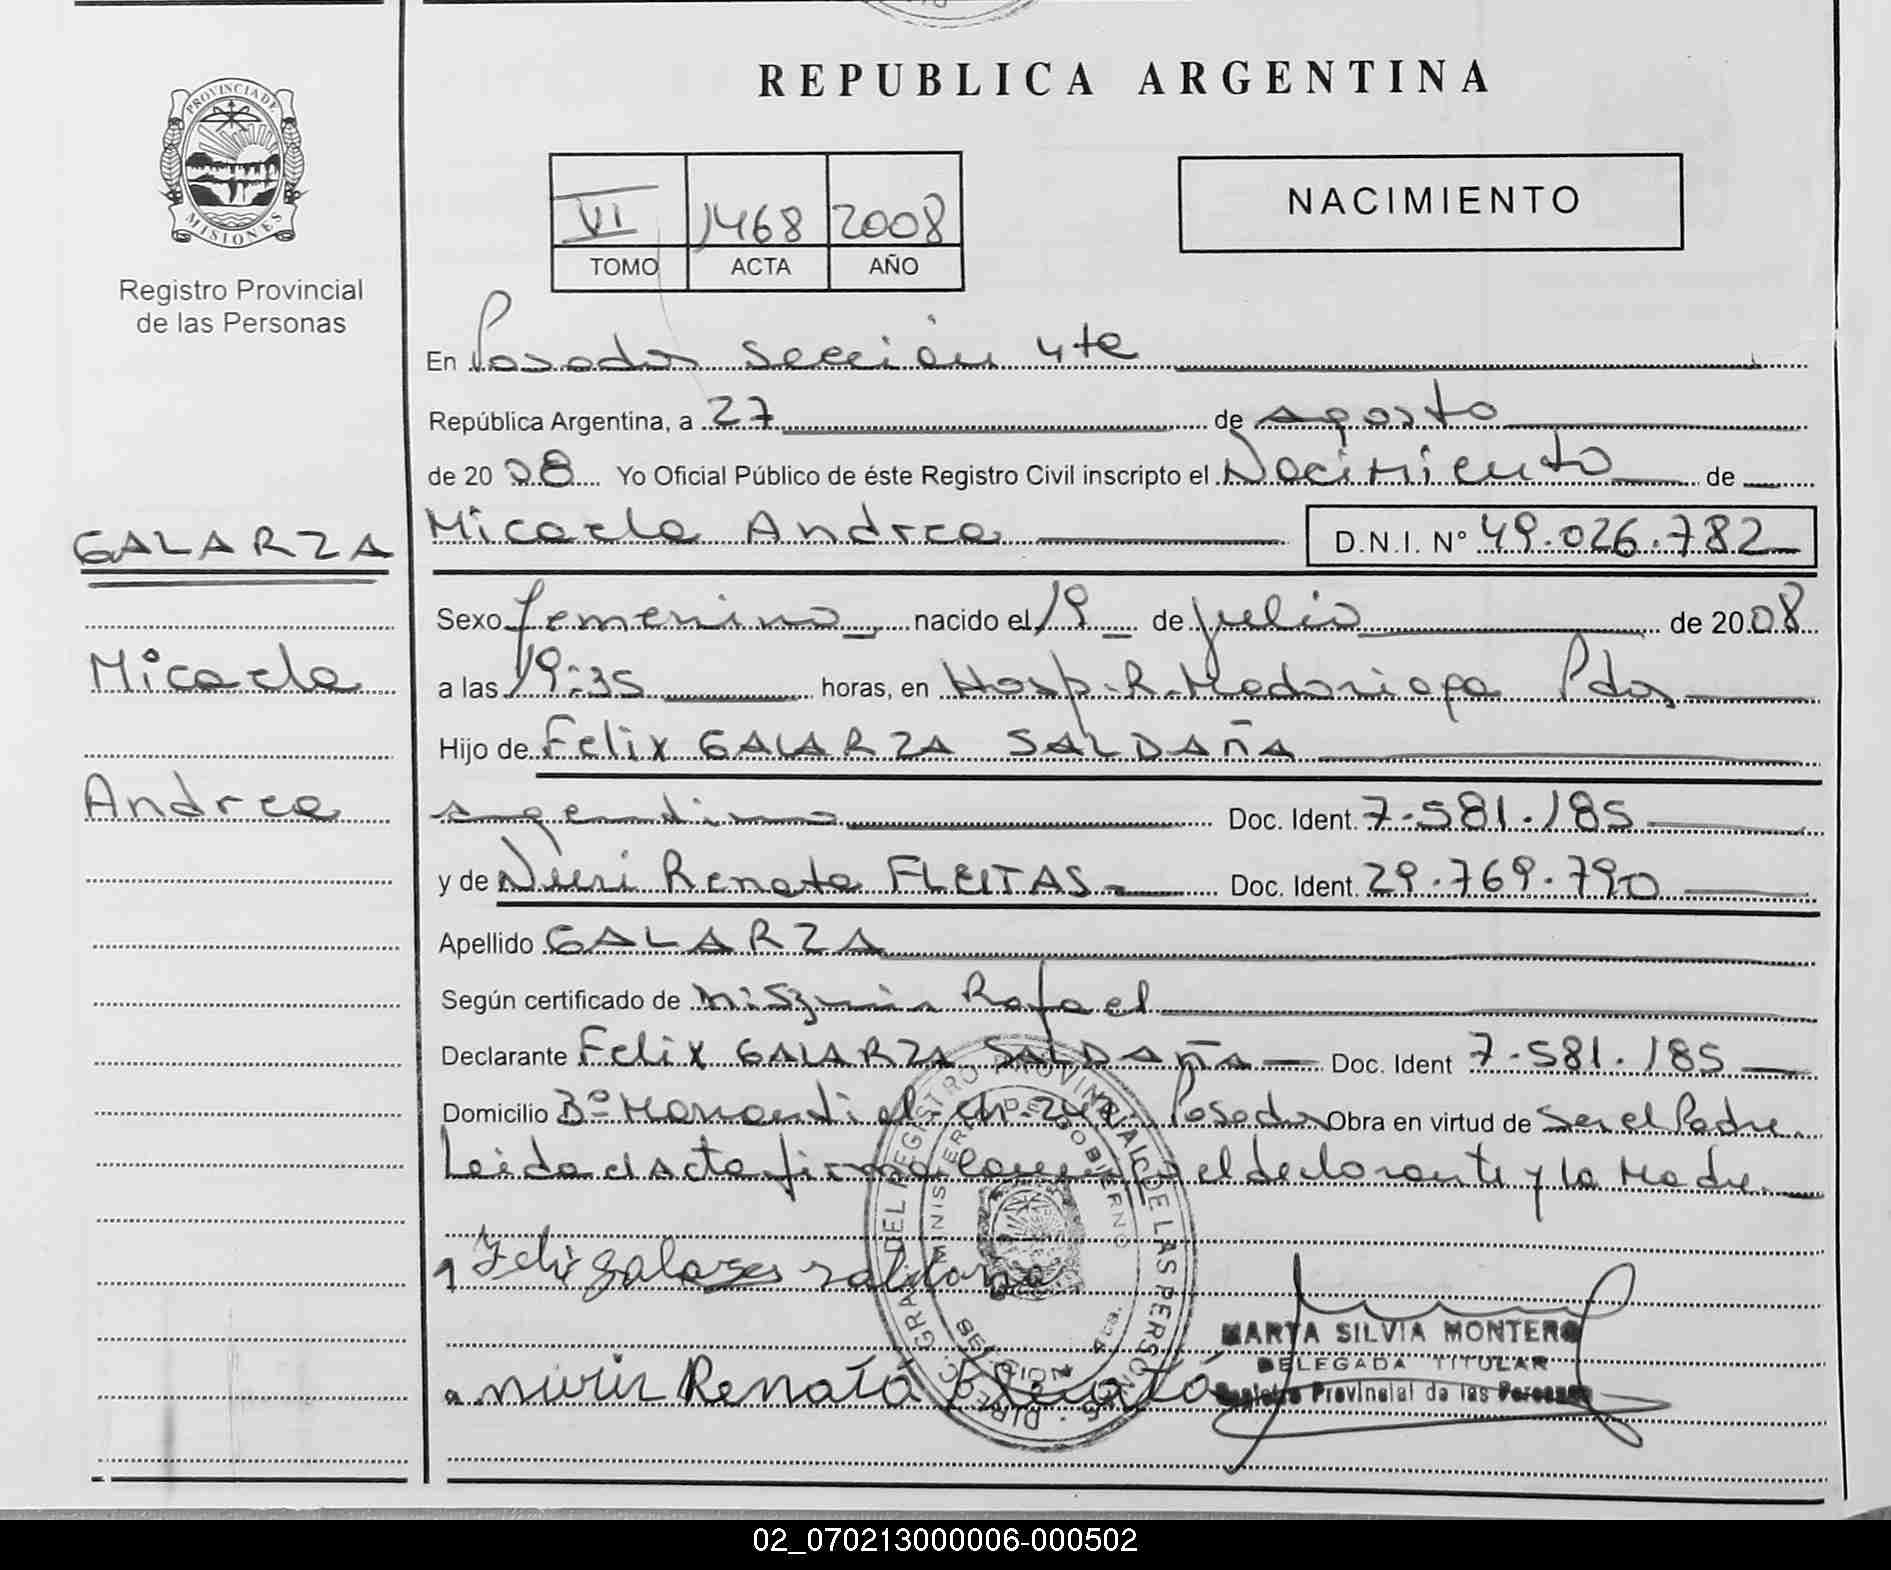 REPUBLICA ARGENTINA
PROVINCIA DE
MISIONES
Registro Provincial
de las Personas
VI 1468 2008
TOMO ACTA AÑO
NACIMIENTO
En Posadas Sección 4ta
República Argentina, a 27 de agosto
de 2008 Yo Oficial Público de éste Registro Civil inscripto el Nacimiento de
GALARZA
Micaela Andrea D.N.I. N° 49.026.782
Sexo femenino nacido el 19 de julio de 2008
Micaela
a las 19:35 horas, en Hosp. R. Madariaga Pdas
Hijo de Felix GALARZA SALDAÑA
Andrea
argentino Doc. Ident. 7.581.185
y de Renata FLEITAS Doc. Ident. 29.769.790
Apellido GALARZA
Según certificado de Rafael
Declarante Felix GALARZA SALDAÑA Doc. Ident 7.581.185
Domicilio Bº Posadas Obra en virtud de Ser el Padre
Leida el Acta firma el declarante y la Madre
Felix galarza saldaña
Renata
MARTA SILVIA MONTERO
DELEGADA TITULAR
Registro Provincial de las Personas
MINISTERIO DE GOBIERNO
02_070213000006-000502